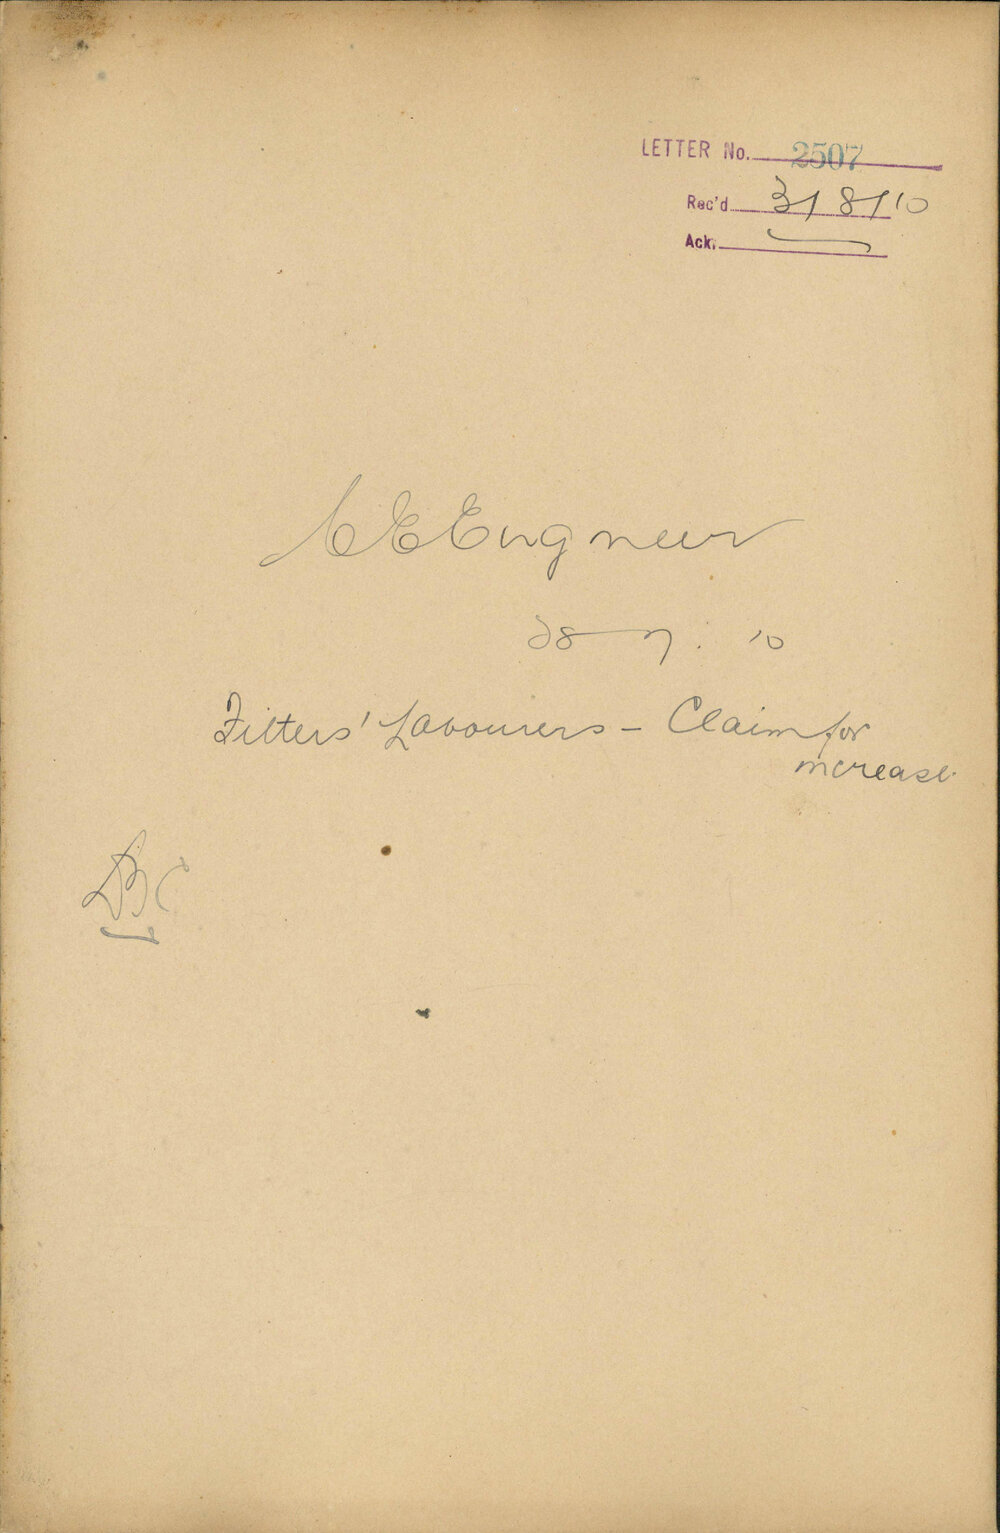 LETTER No. 2507
Rec'd 3/8/10
Ack.
CE Engineer
28 7. 10
Fitters' Labourers - Claim for
increase.